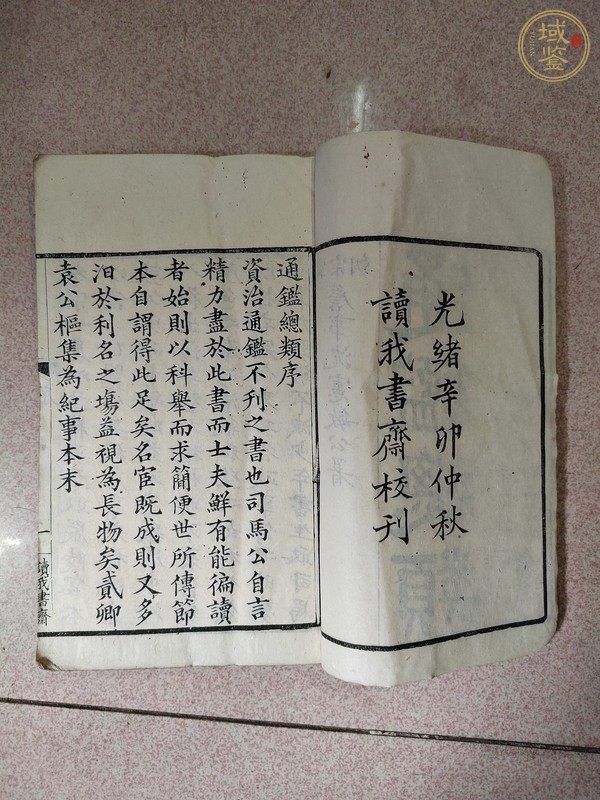 光緒辛卯仲秋
讀我書齋校刊
通鑑總類序
資治通鑑不刊之書也司馬公自言
精力盡於此書而士夫鮮有能徧讀
者始則以科舉而求簡便世所傳節
本自謂得此足矣名宦既成則又多
汨於利名之塲益視為長物矣貳卿
袁公樞集為紀事本末
一
讀我書齋
域鑒
YUJIAN